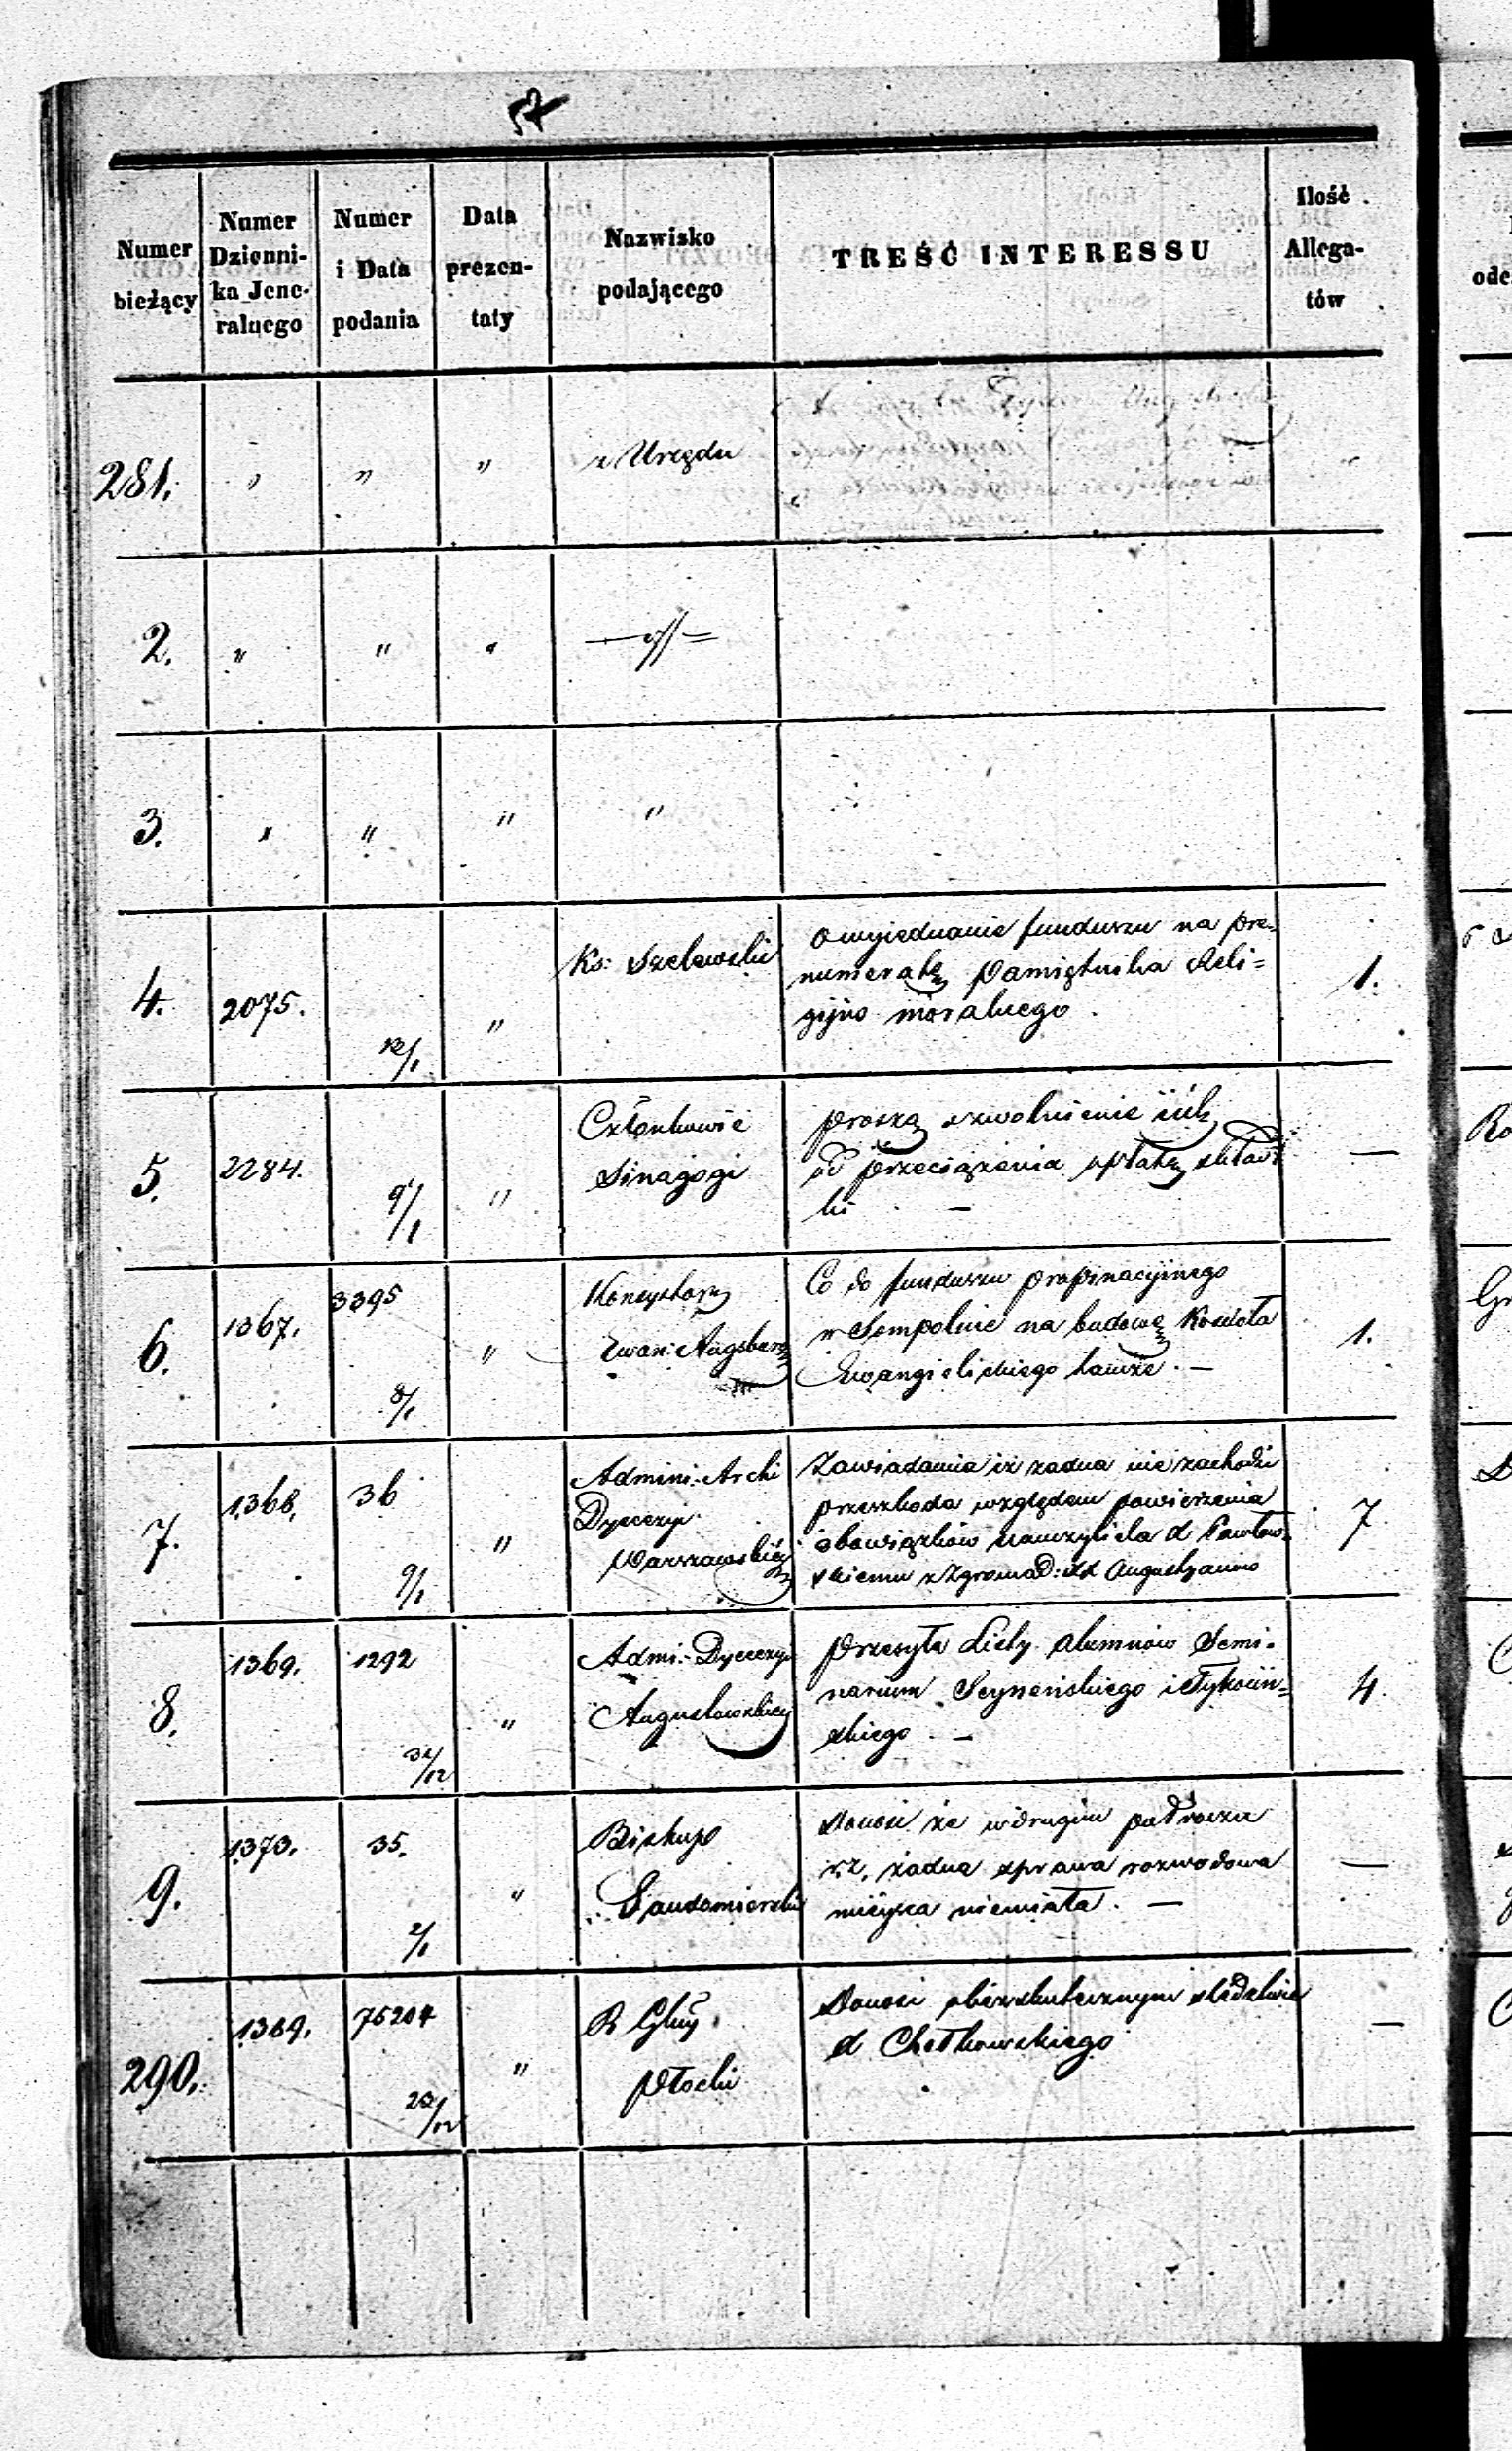 57
Numer bieżący
Numer Dzienni-ka Jene-ralnego
Numer i Data podania
Data prezen-taty
Nazwisko podającego
TREŚĆ INTERESSU
Ilość Allega-tów
281. " " " z Urzędu
2. " " "
3. " " " "
4. 2075. 12/1 " Ks: Szelewski
o wyjednanie funduszu na pre-
numeratę Pamiętnika Reli=
gijno moralnego.
1.
5. 2284. 9/1 "
Członkowie
Sinagogi
proszą o zwolnienie ich
od przeciążenia opłatą składki
—
6. 1367. 3395 8/1 "
Konsystorz
Ewan: Augsburs
Co do funduszu propinacyjnego
w Sompolnie na budowę Kościoła
Ewangielickiego tamże. —
1.
7. 1368. 36 9/1 "
Admini: Archi
Dyecezyi
Warszawskiéj
Zawiadamia iż żadna nie zachodzi
przeszkoda względem powierzenia
obowiązków nauczyciela X Pawłow-
skiemu z Zgromad: XX Augustyanów
7
8. 1369. 1292 31/12 "
Admi: Dyecezyi
Augustowskiey
Przesyła Listy alumnów Semi-
narium Seyneńskiego i Tykociń=
skiego. —
4
9. 1373. 35. 2/1 "
Biskup
Sandomierski
Donosi że w drugim półroczu
r.z. żadna sprawa rozwodowa
mieysca niemiała. —
—
290. 1389. 75204 23/12 "
R Gbny
Płocki
Donosi o bezskutecznym śledztwie
X Chotkowskiego
—